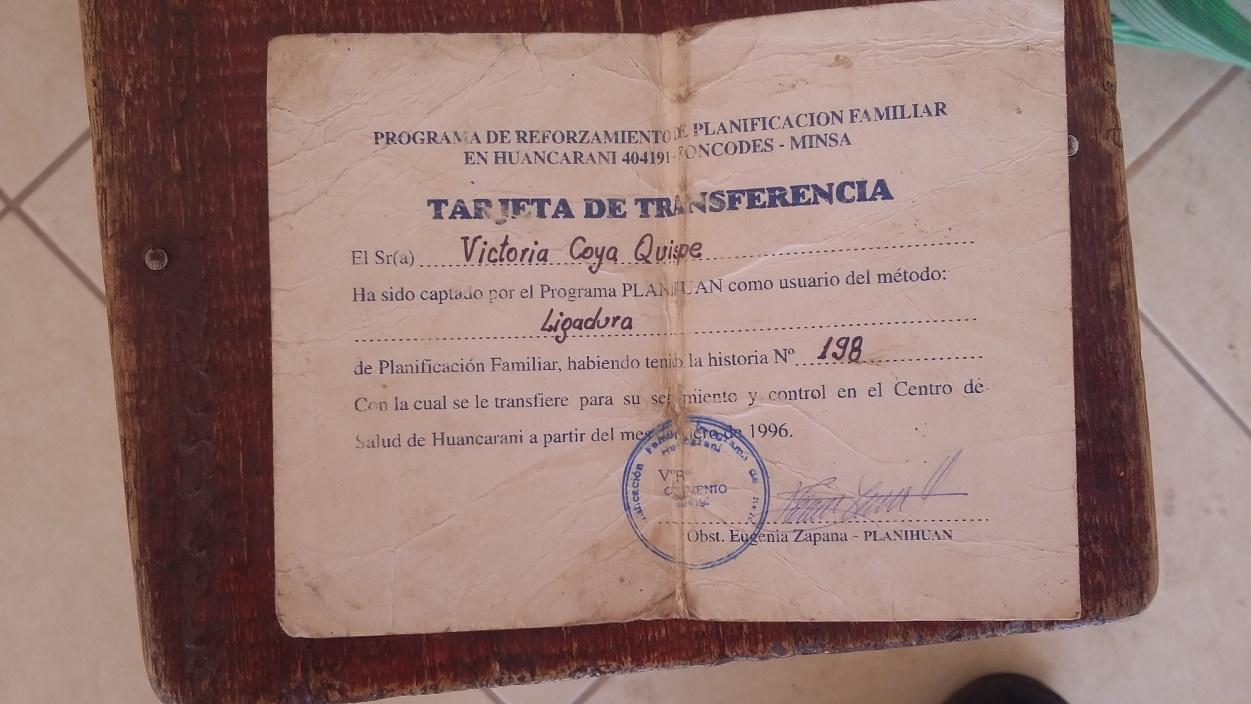 PROGRAMA DE REFORZAMIENTO DE PLANIFICACION FAMILIAR
EN HUANCARANI 404191-FONCODES - MINSA
TARJETA DE TRANSFERENCIA
El Sr(a) Victoria Coya Quispe
Ha sido captado por el Programa PLANIHUAN como usuario del método:
Ligadura
de Planificación Familiar, habiendo tenio la historia Nº 198
Con la cual se le transfiere para su y control en el Centro de
Salud de Huancarani a partir del mes de 1996.
Huancarani
VºBº
CONVENIO
Obst. Eugenia Zapana - PLANIHUAN